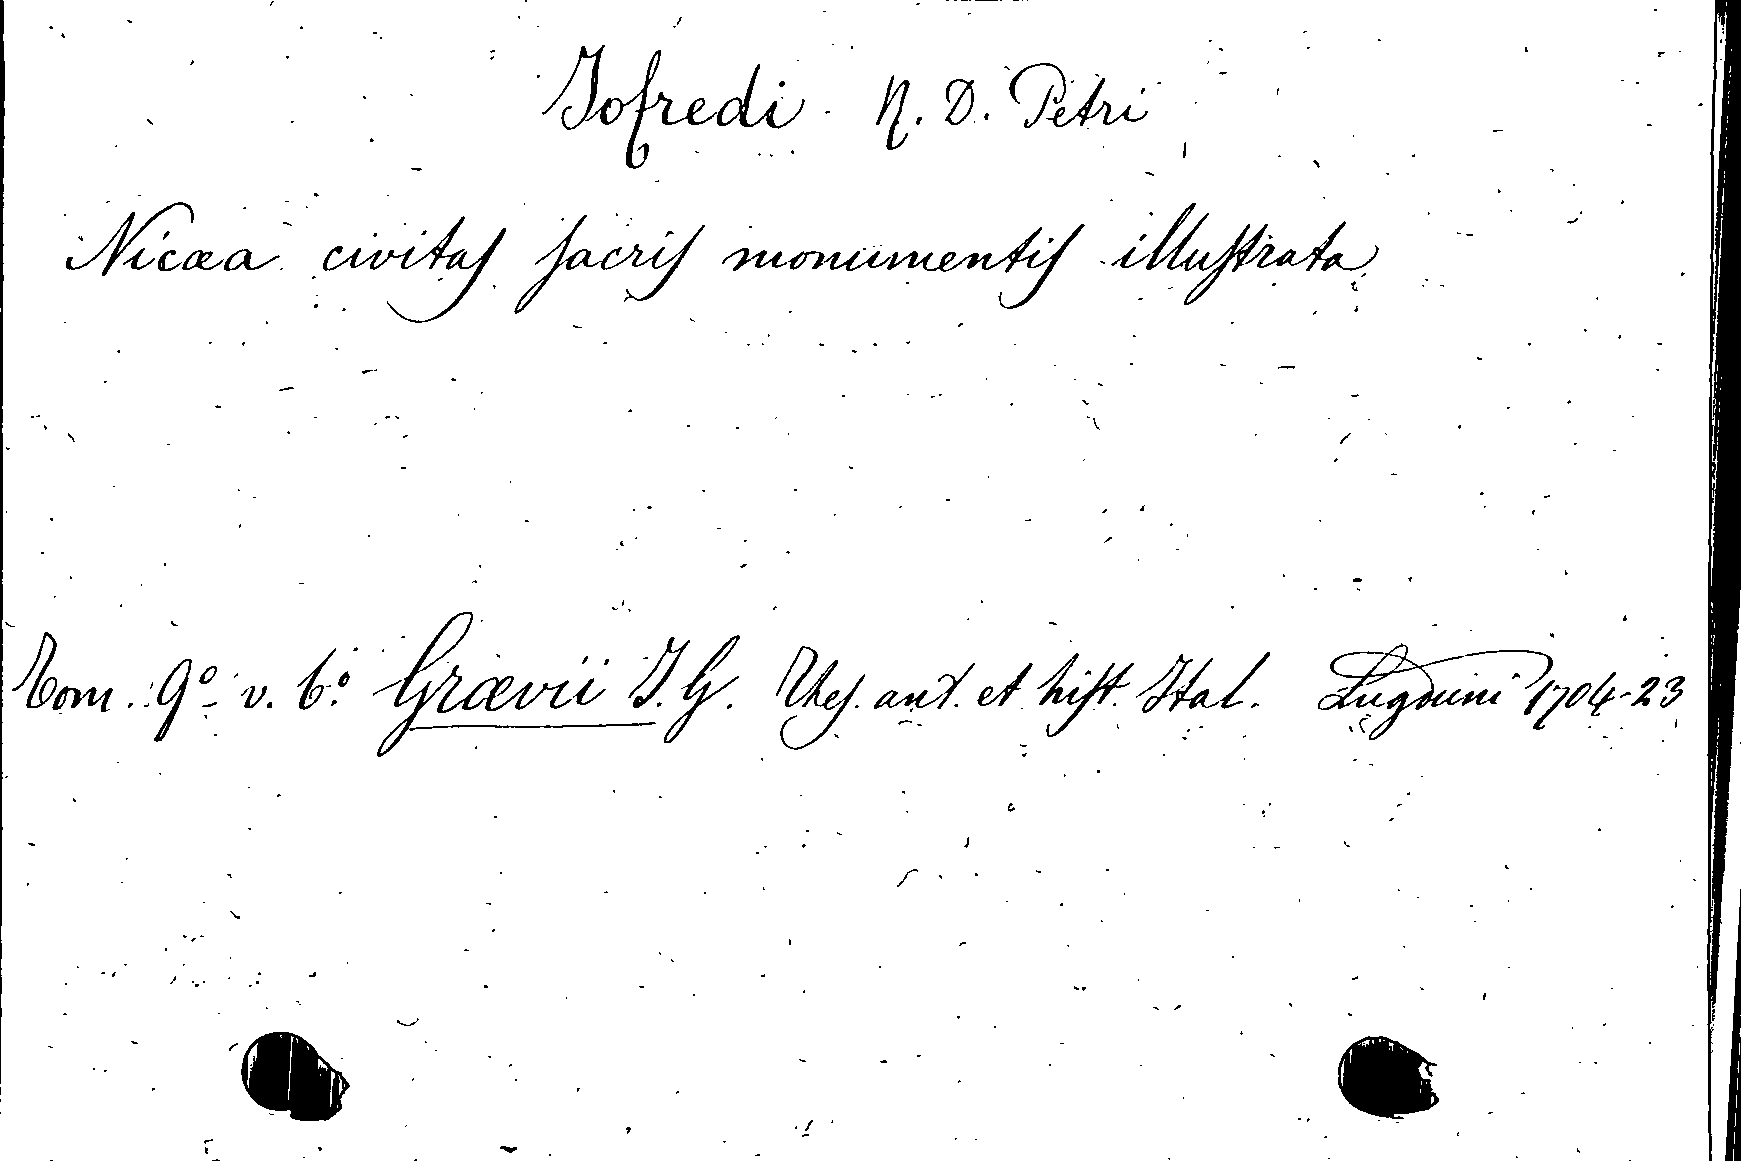 Jofredi R. D. Petri
Nicæa civitas sacris monumentis illustrata
Tom. 9º v. 6º Grævii J. G. Thes. ant. et hist. Ital. Lugduni 1704-23